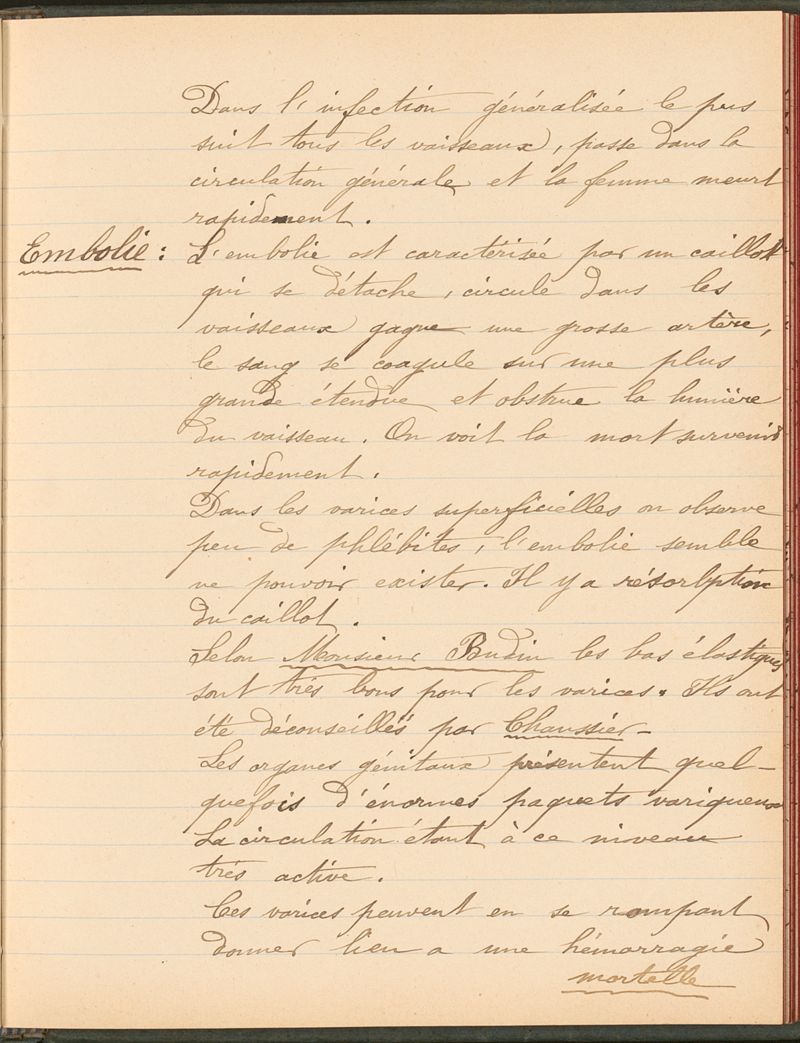 Dans l'infection généralisée le pus
suit tous les vaisseaux, passe dans la
circulation générale et la femme meurt
rapidement.
Embolie : L'embolie est caractérisée par un caillot
qui se détache, circule dans les
vaisseaux gagne une grosse artère,
le sang se coagule sur une plus
grande étendue et obstrue la lumière
du vaisseau. On voit la mort survenir
rapidement.
Dans les varices superficiélles on observe
peu de phlébites, l'embolie semble
ne pouvoir exister. Il y a résorbption
du caillot.
Selon Monsieur Budin les bas élastiques
sont très bons pour les varices. Ils ont
été déconseillés par Chaussier-
Les organes génitaux présentent quel-
quefois d'énormes paquets variqueux
La circulation étant à ce niveau
très active.
Ces varices peuvent en se rompant
donner lieu a une hémorragie
mortelle